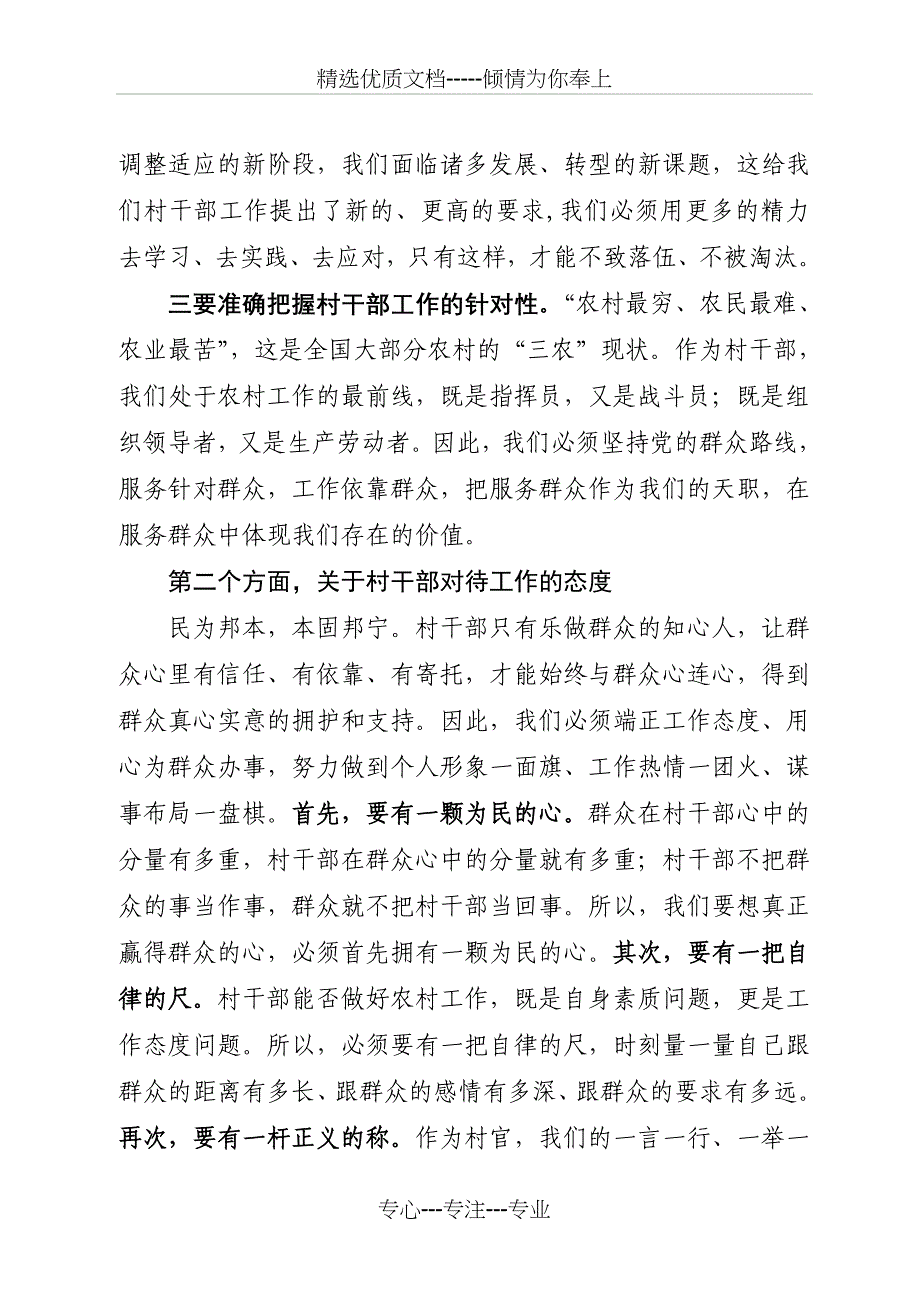 精选优质文档-----倾情为你奉上
调整适应的新阶段，我们面临诸多发展、转型的新课题，这给我
们村干部工作提出了新的、更高的要求，我们必须用更多的精力
去学习、去实践、去应对，只有这样，才能不致落伍、不被淘汰。
三要准确把握村干部工作的针对性。“农村最穷、农民最难、
农业最苦”，这是全国大部分农村的“三农”现状。作为村干部，
我们处于农村工作的最前线，既是指挥员，又是战斗员；既是组
织领导者，又是生产劳动者。因此，我们必须坚持党的群众路线，
服务针对群众，工作依靠群众，把服务群众作为我们的天职，在
服务群众中体现我们存在的价值。
第二个方面，关于村干部对待工作的态度
民为邦本，本固邦宁。村干部只有乐做群众的知心人，让群
众心里有信任、有依靠、有寄托，才能始终与群众心连心，得到
群众真心实意的拥护和支持。因此，我们必须端正工作态度、用
心为群众办事，努力做到个人形象一面旗、工作热情一团火、谋
事布局一盘棋。首先，要有一颗为民的心。群众在村干部心中的
分量有多重，村干部在群众心中的分量就有多重；村干部不把群
众的事当作事，群众就不把村干部当回事。所以，我们要想真正
赢得群众的心，必须首先拥有一颗为民的心。其次，要有一把自
律的尺。村干部能否做好农村工作，既是自身素质问题，更是工
作态度问题。所以，必须要有一把自律的尺，时刻量一量自己跟
群众的距离有多长、跟群众的感情有多深、跟群众的要求有多远。
再次，要有一杆正义的称。作为村官，我们的一言一行、一举一
专心---专注---专业